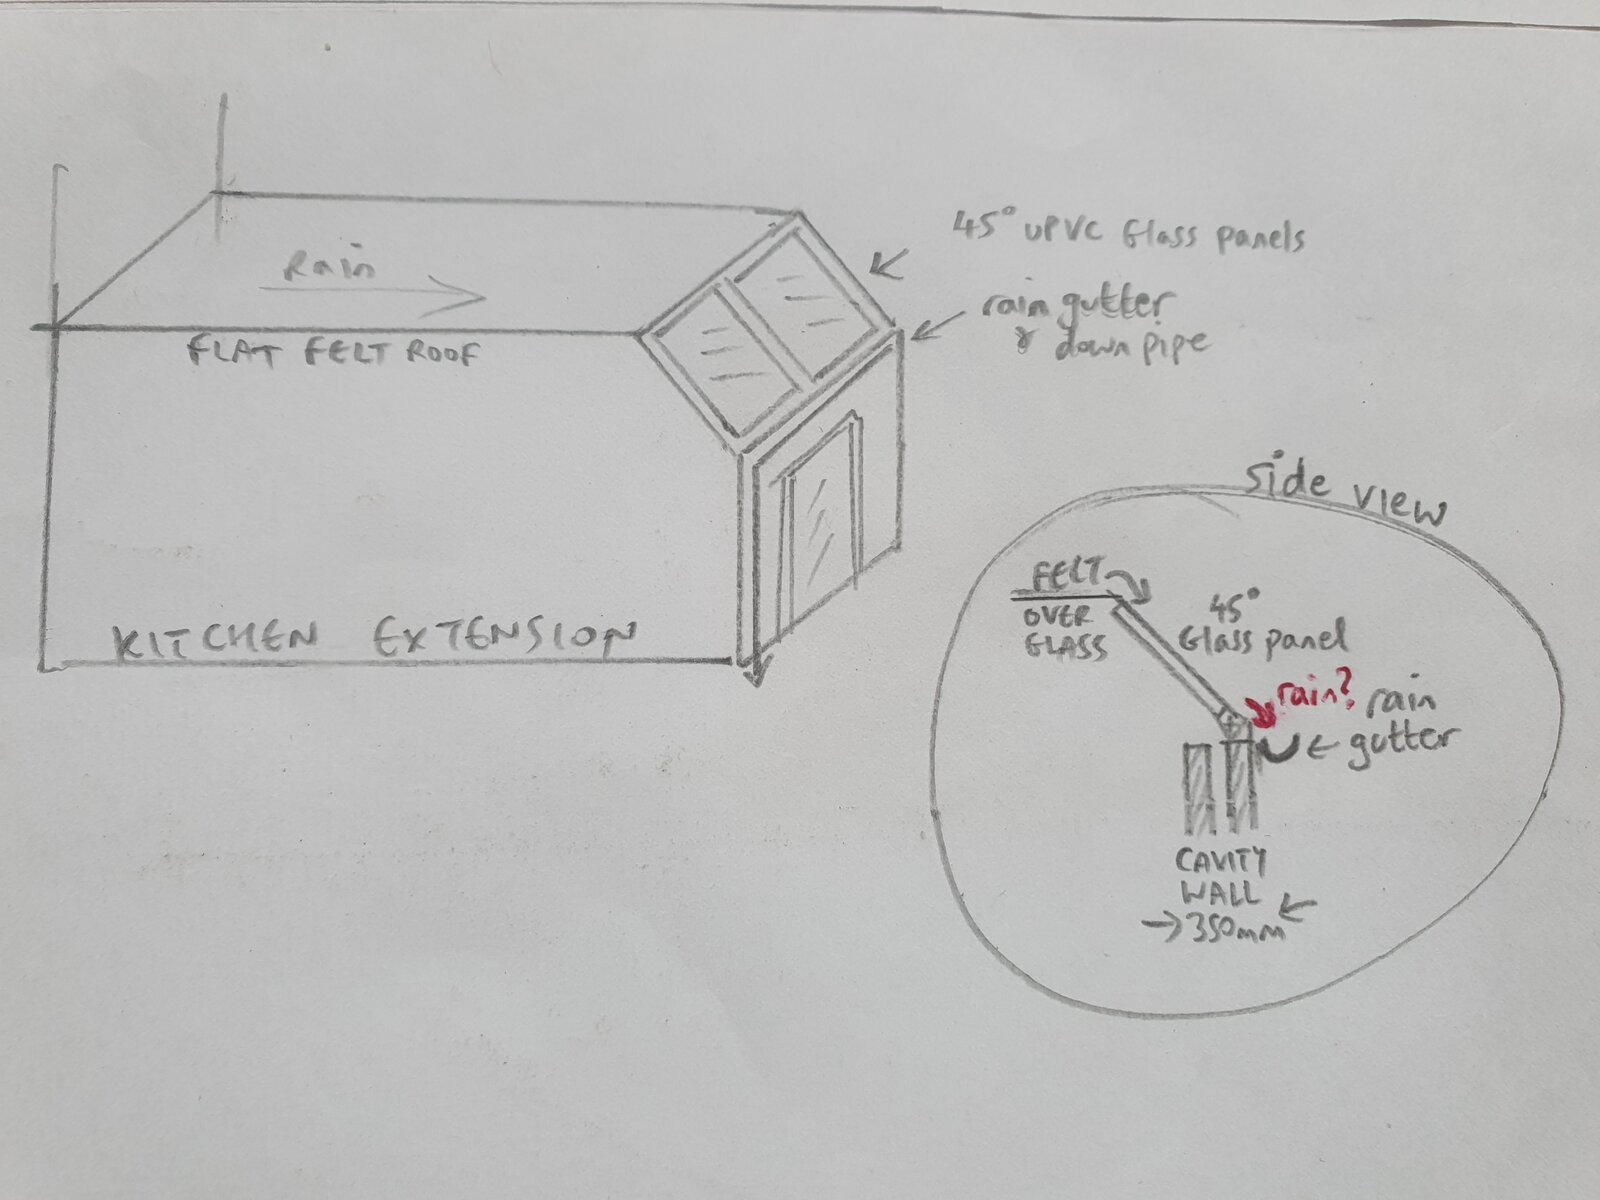 45° uPVC Glass panels
rain gutter
& down pipe
Rain
FLAT FELT ROOF
KITCHEN EXTENSION
Side view
FELT
OVER
GLASS
45°
Glass panel
rain?
rain
gutter
CAVITY
WALL
350mm